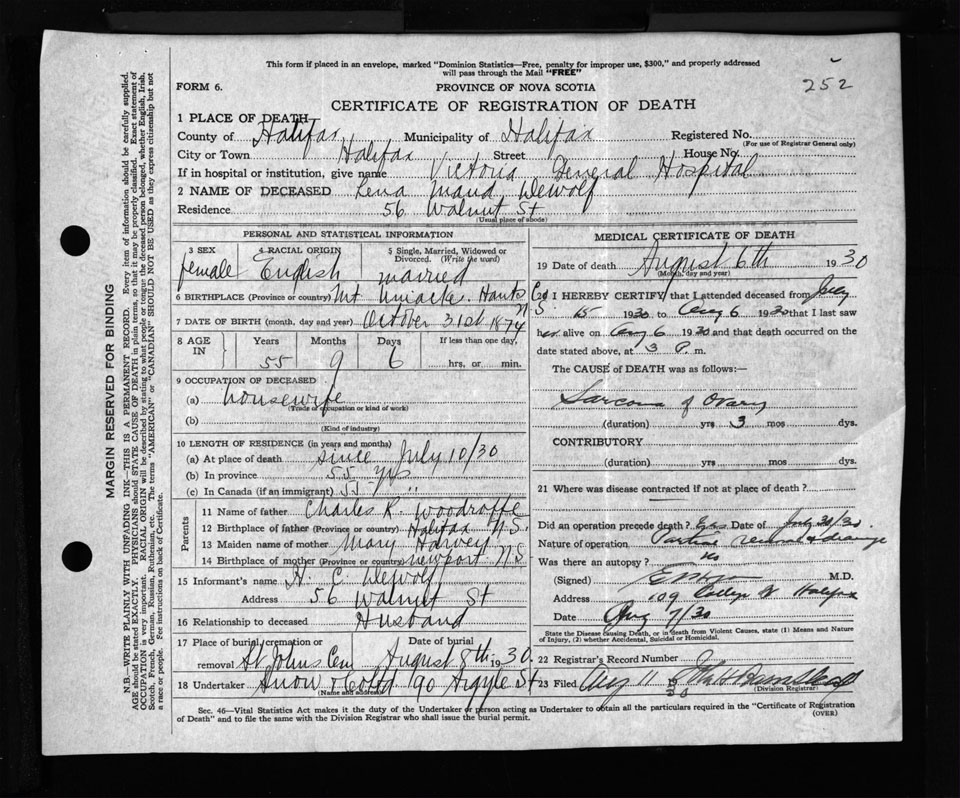 This form if placed in an envelope, marked "Dominion Statistics—Free, penalty for improper use, $300," and properly addressed
will pass through the Mail "FREE"
252
FORM 6.
PROVINCE OF NOVA SCOTIA
CERTIFICATE OF REGISTRATION OF DEATH
1 PLACE OF DEATH
County of Halifax Municipality of Halifax Registered No.
(For use of Registrar General only)
City or Town Halifax Street House No.
If in hospital or institution, give name Victoria General Hospital
2 NAME OF DECEASED Lena Maud Dewolf
Residence 56 Walnut St
(Usual place of abode)
PERSONAL AND STATISTICAL INFORMATION
3 SEX 4 RACIAL ORIGIN 5 Single, Married, Widowed or Divorced. (Write the word)
female English married
6 BIRTHPLACE (Province or country) Mt Uniacke. Hants Co N.S.
7 DATE OF BIRTH (month, day and year) October 31st 1874
8 AGE IN Years Months Days If less than one day,
55 9 6 hrs, or min.
9 OCCUPATION OF DECEASED
(a) housewife
(Trade or occupation or kind of work)
(b)
(Kind of industry)
10 LENGTH OF RESIDENCE (in years and months)
(a) At place of death since July 10/30
(b) In province 55 Yrs
(c) In Canada (if an immigrant) 55 "
Parents
11 Name of father Charles R. Woodroffe
12 Birthplace of father (Province or country) Halifax N.S.
13 Maiden name of mother Mary Harvey
14 Birthplace of mother (Province or country) Newport N.S.
15 Informant's name H. C. Dewolf
Address 56 Walnut St
16 Relationship to deceased Husband
17 Place of burial, cremation or Date of burial
removal St Johns Cem August 8th 1930.
18 Undertaker Snow & Co Ltd 90 Argyle St
(Name and address)
MEDICAL CERTIFICATE OF DEATH
19 Date of death August 6th 1930
(Month, day and year)
I HEREBY CERTIFY, that I attended deceased from July
15 1930 to Aug 6 1930 that I last saw
her alive on Aug 6 1930 and that death occurred on
date stated above, at 3 P. m.
The CAUSE of DEATH was as follows:
Sarcoma of Ovary
(duration) yrs 3 mos dys.
CONTRIBUTORY
(duration) yrs mos dys.
21 Where was disease contracted if not at place of death?
Did an operation precede death? Yes Date of July 30/30.
Nature of operation Partial removal & drainage
Was there an autopsy? No
(Signed) M.D.
Address 109 College St Halifax
Date Aug 7/30
State the Disease causing Death, or in death from Violent Causes, state (1) Means and Nature
of Injury, (2) whether Accidental, Suicidal or Homicidal.
22 Registrar's Record Number
23 Filed Aug 11
(Division Registrar)
Sec. 46—Vital Statistics Act makes it the duty of the Undertaker or person acting as Undertaker to obtain all the particulars required in the "Certificate of Registration
of Death" and to file the same with the Division Registrar who shall issue the burial permit.
(OVER)
MARGIN RESERVED FOR BINDING
N.B.—WRITE PLAINLY WITH UNFADING INK—THIS IS A PERMANENT RECORD. Every item of information should be carefully supplied.
AGE should be stated EXACTLY. PHYSICIANS should STATE CAUSE OF DEATH in plain terms, so that it may be properly classified. Exact statement of
OCCUPATION very important. RACIAL ORIGIN will be described by stating to what people or tongue the deceased person belonged, whether English, Irish,
Scotch, French, German, Russian, Ruthenian, etc. The terms "AMERICAN" or "CANADIAN" SHOULD NOT BE USED as they express citizenship but not
a race or people. See instructions on back of Certificate.